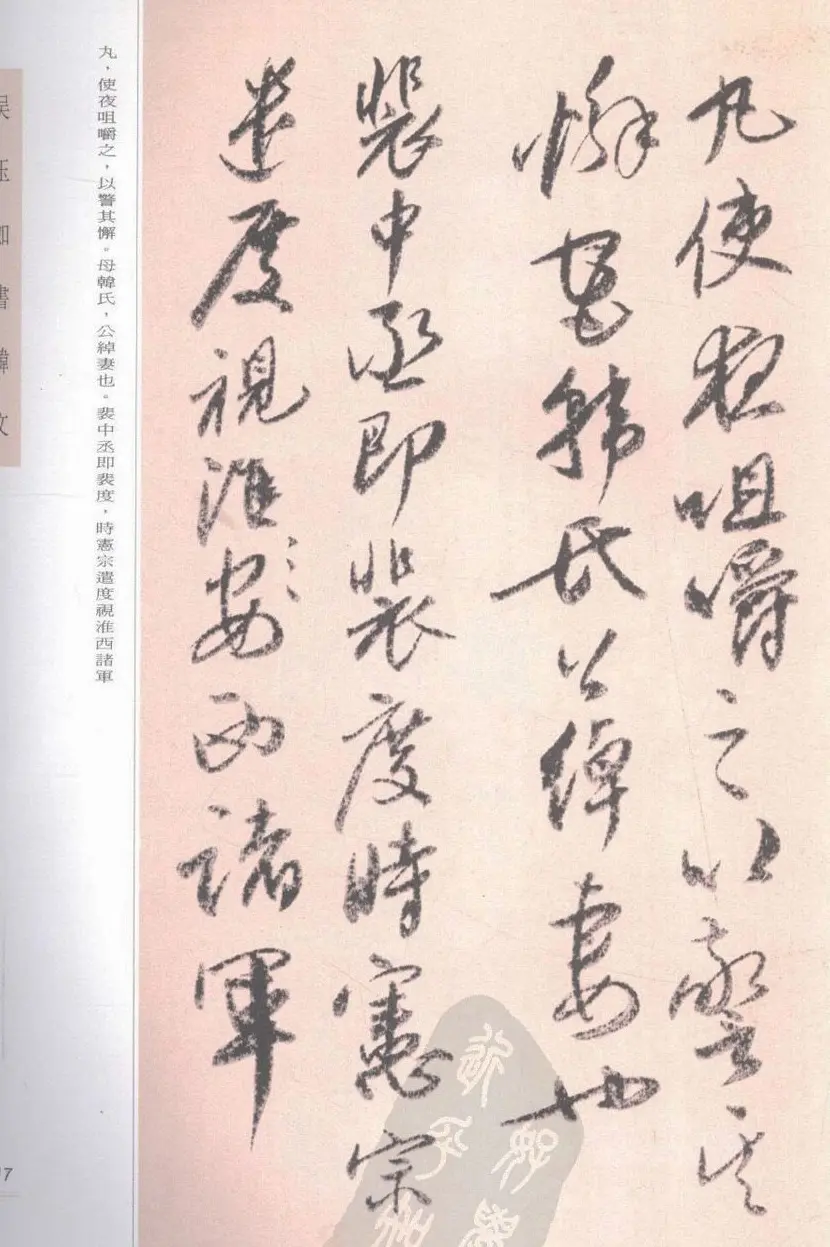 九使夜咀嚼之以警其
懈母韓氏公綽妻也
裴中丞即裴度時憲宗
遣度視淮安西諸軍
丸，使夜咀嚼之，以警其懈。母韓氏，公綽妻也。裴中丞即裴度，時憲宗遣度視淮西諸軍
17